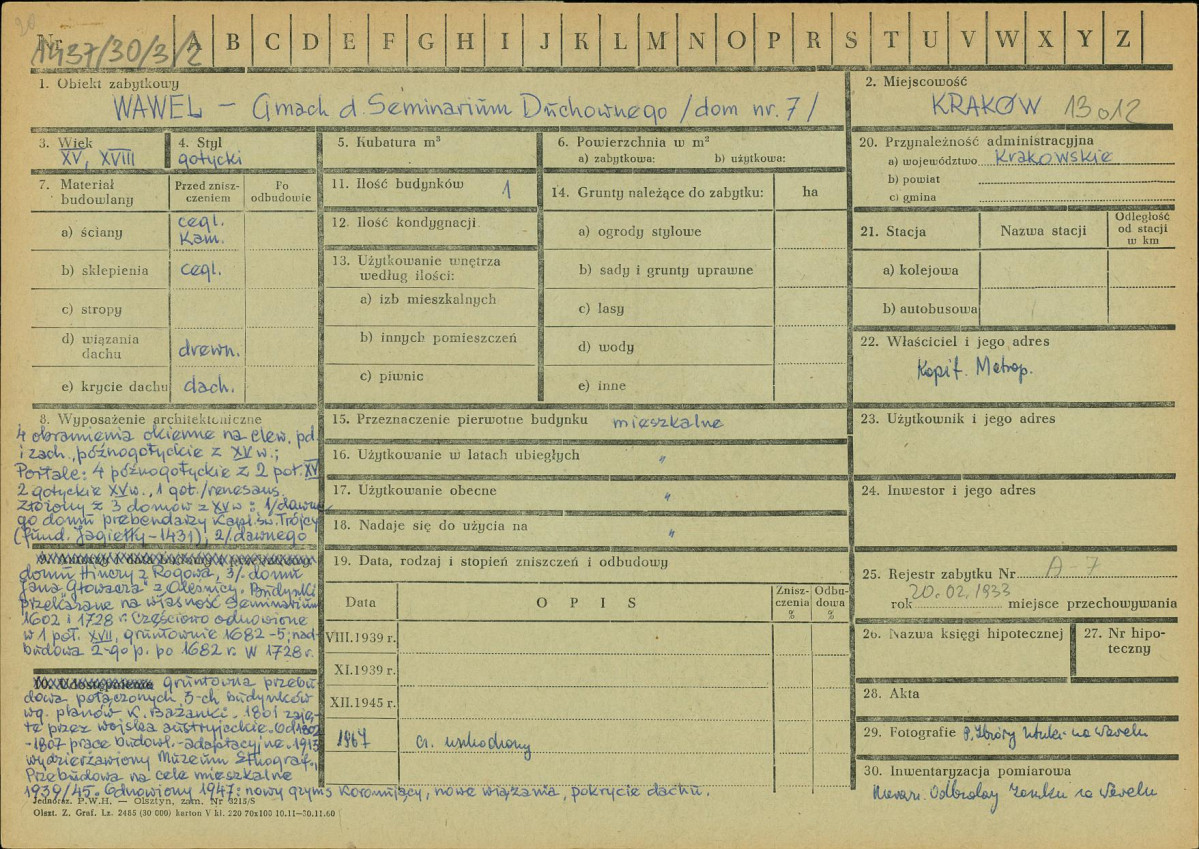 Nr 1437/30/3/2 A B C D E F G H I J K L M N O P R S T U V W X Y Z
1. Obiekt zabytkowy
WAWEL – Gmach d. Seminarium Duchownego /dom nr. 7/
2. Miejscowość
KRAKÓW 13012
3. Wiek
XV, XVIII
4. Styl
gotycki
5. Kubatura m³
6. Powierzchnia w m²
a) zabytkowa: b) użytkowa:
20. Przynależność administracyjna
a) województwo Krakowskie
b) powiat
c) gmina
7. Materiał budowlany
Przed znisz-
czeniem
Po
odbudowie
a) ściany cegl.
Kam.
b) sklepienia cegl.
c) stropy
d) wiązania
dachu drewn.
e) krycie dachu dach.
11. Ilość budynków 1
12. Ilość kondygnacji
13. Użytkowanie wnętrza
według ilości:
a) izb mieszkalnych
b) innych pomieszczeń
c) piwnic
14. Grunty należące do zabytku: ha
a) ogrody stylowe
b) sady i grunty uprawne
c) lasy
d) wody
e) inne
21. Stacja Nazwa stacji
Odległość
od stacji
w km
a) kolejowa
b) autobusowa
22. Właściciel i jego adres
Kapit. Metrop.
8. Wyposażenie architektoniczne
4 obramienia okienne na elew. pd.
i zach., późnogotyckie z XV w.;
Portale: 4 późnogotyckie z 2 poł. XV
2 gotyckie XV w., 1 got./renesans.
Złożony z 3 domów z XV w: 1/dawne-
go domu prebendarzy Kapl. św. Trójcy
(fund. Jagiełły – 1431); 2/dawnego
domu Hinczy z Rogowa, 3/. domu
Jana "Głowacza" z Oleśnicy. Budynki
przekazane na własność Seminarium
1602 i 1728 r. Częściowo odnowione
w 1 poł. XVII, gruntownie 1682-5; nad-
budowa 2-go p. po 1682 r. W 1728 r.
10. Udostępnienie gruntowna przebu-
dowa połączonych 3-ch budynków
wg. planów K. Bażanki. 1801 zaję-
te przez wojska austryjackie. Od 1802
-1807 prace budowl.-adaptacyjne. 1913
wydzierżawiony Muzeum Etnograf.,
Przebudowa na cele mieszkalne
1939/45. Odnowiony 1947: nowy gzyms koronujący, nowe wiązania, pokrycie dachu.
15. Przeznaczenie pierwotne budynku mieszkalne
16. Użytkowanie w latach ubiegłych "
17. Użytkowanie obecne "
18. Nadaje się do użycia na "
19. Data, rodzaj i stopień zniszczeń i odbudowy
Data O P I S
Znisz-
czenia
%
Odbu-
dowa
%
VIII.1939 r.
XI.1939 r.
XII.1945 r.
1967
23. Użytkownik i jego adres
24. Inwestor i jego adres
25. Rejestr zabytku Nr A-7
rok 20.02.1933 miejsce przechowywania
26. Nazwa księgi hipotecznej
27. Nr hipo-
teczny
28. Akta
29. Fotografie P. Zbiory Sztuki na Wawelu
30. Inwentaryzacja pomiarowa
Odbudowy Zamku na Wawelu
Jednoraz. P.W.H. — Olsztyn, zam. Nr 3213/S
Olszt. Z. Graf. Lz. 2485 (30 000) karton V kl. 220 70x100 10.11—30.11.60